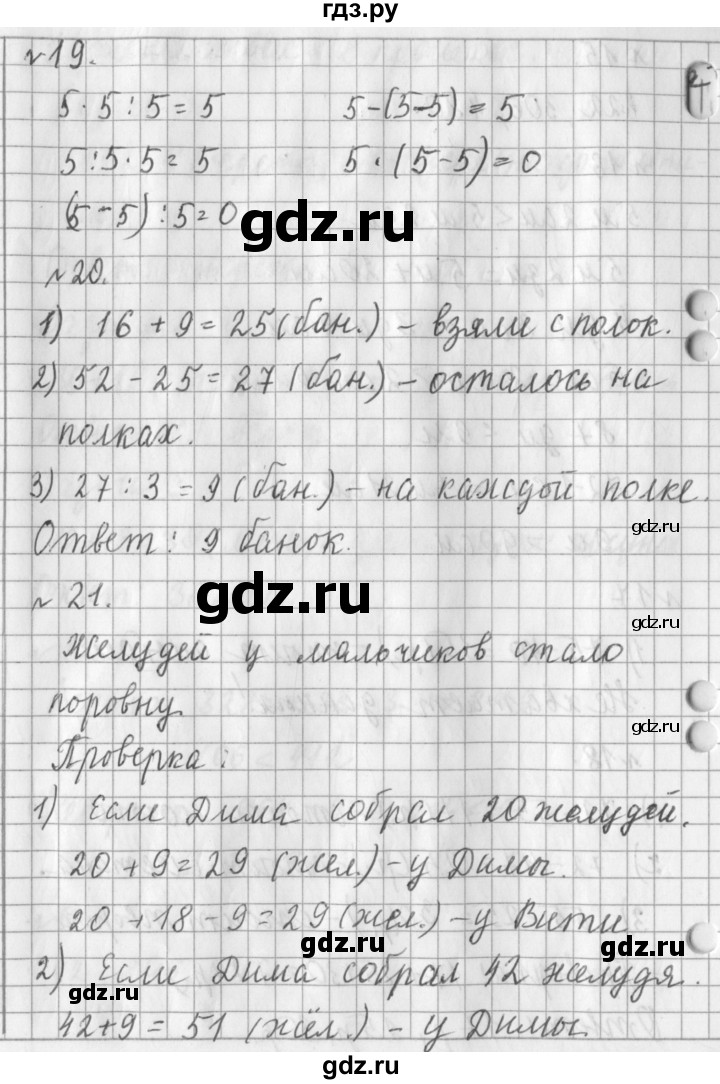 гдз.ру
№19.
5·5:5=5 5-(5-5)=5
5:5·5=5 5·(5-5)=0
(5-5):5=0
gdz.ru
№20.
1) 16+9=25(бан.) - взяли с полок.
2) 52-25=27(бан.) - осталось на
полках.
3) 27:3=9(бан.) - на каждой полке.
gdz.ru
Ответ: 9 банок.
gdz.ru
№21.
gdz.ru
Желудей у мальчиков стало
поровну.
gdz.ru
Проверка:
1) Если Дима собрал 20 желудей.
20+9=29(жел.) - у Димы.
gdz.ru
20+18-9=29(жел.) - у Вити.
gdz.ru
gdz.ru
2) Если Дима собрал 42 желудя.
gdz.ru
42+9=51(жёл.) - у Димы.
gdz.ru